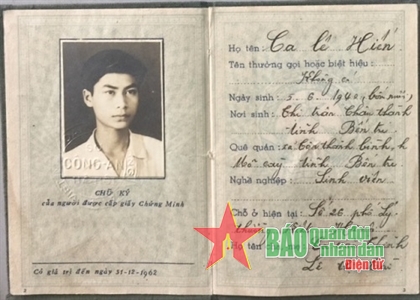 CÔNG-AN
CHỮ KÝ
của người được cấp giấy Chứng Minh
Có giá trị đến ngày 31-12-1962
Họ tên: Ca Lê Hiến
Tên thường gọi hoặc biệt hiệu:
Không có
Ngày sinh: 5-6-1940
Nơi sinh: Thị trấn Châu thành
tỉnh Bến tre
Quê quán: xã
Mỏ cày tỉnh Bến tre
Nghề nghiệp: Sinh viên
Chỗ ở hiện tại: Số 26 phố Lý
BÁO quân đội
nhân dân
Điện tử
Họ tên
Lê